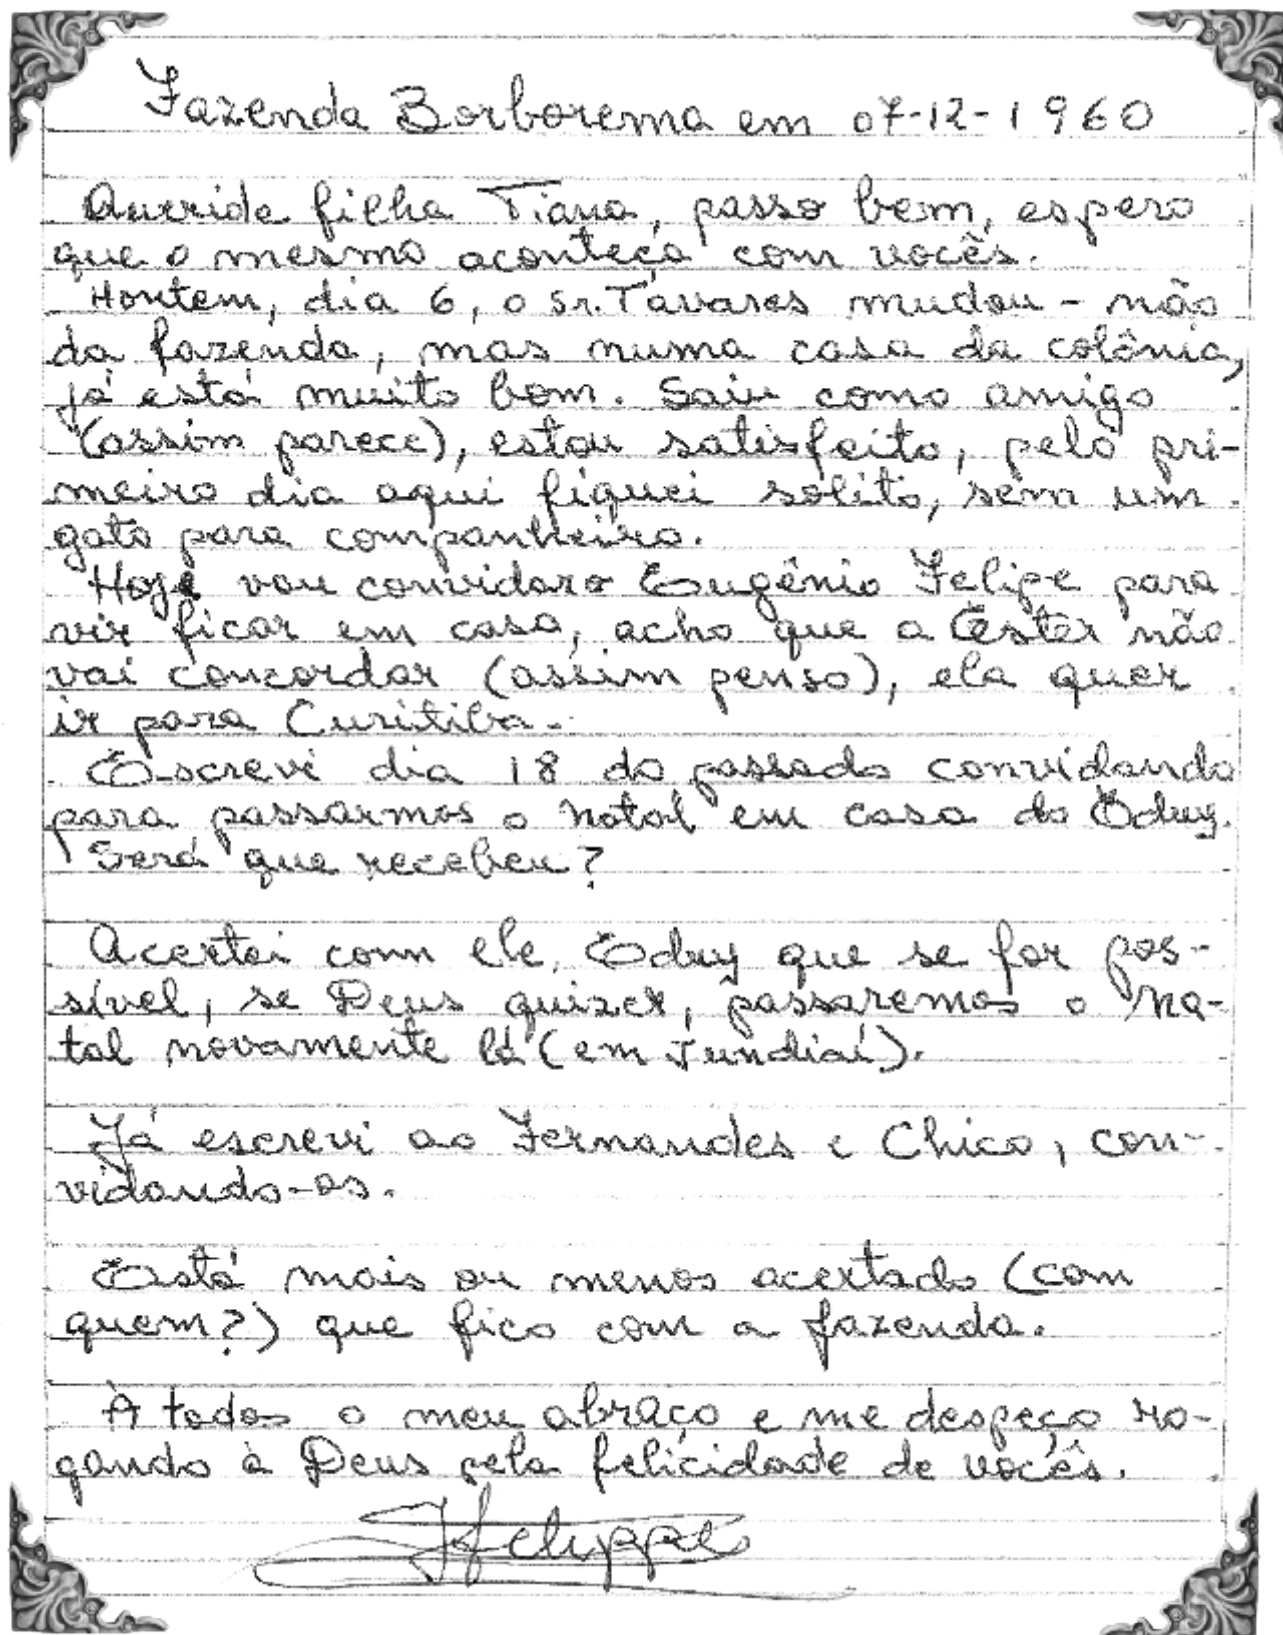 Fazenda Borborema em 07-12-1960
Querida filha Tiana, passo bem, espero
que o mesmo aconteça com vocês.
Hontem, dia 6, o Sr. Tavares mudou - não
da fazenda, mas numa casa da colônia,
já está muito bom. Saiu como amigo
(assim parece), estou satisfeito, pelo pri-
meiro dia aqui fiquei sólito, sem um
gato para companheiro.
Hoje vou convidar o Eugênio Felipe para
vir ficar em casa, acho que a Ester não
vai concordar (assim penso), ela quer
ir para Curitiba.
Escrevi dia 18 do passado convidando
para passarmos o Natal em casa do Eduy.
Será que recebeu?
Acertei com ele, Eduy que se for pos-
sível, se Deus quizer, passaremos o Na-
tal novamente lá (em Jundiaí).
Já escrevi ao Fernandes e Chico, con-
vidando-os.
Está mais ou menos acertado (com
quem?) que fico com a fazenda.
À todos o meu abraço e me despeço ro-
gando à Deus pela felicidade de vocês.
Felippe